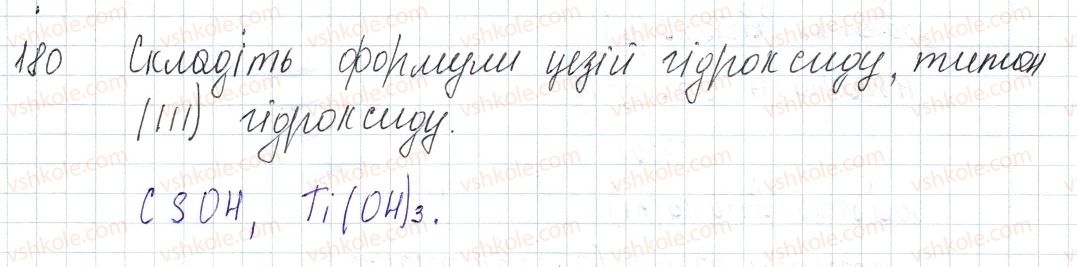 180 Складіть формули цезій гідроксиду, титан
(III) гідроксиду.
CSOH, Ti(OH)3.